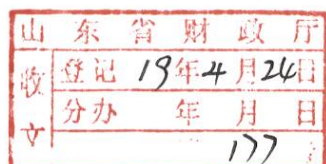 山东省财政厅
收文
登记 19年4月24日
分办 年 月 日
177